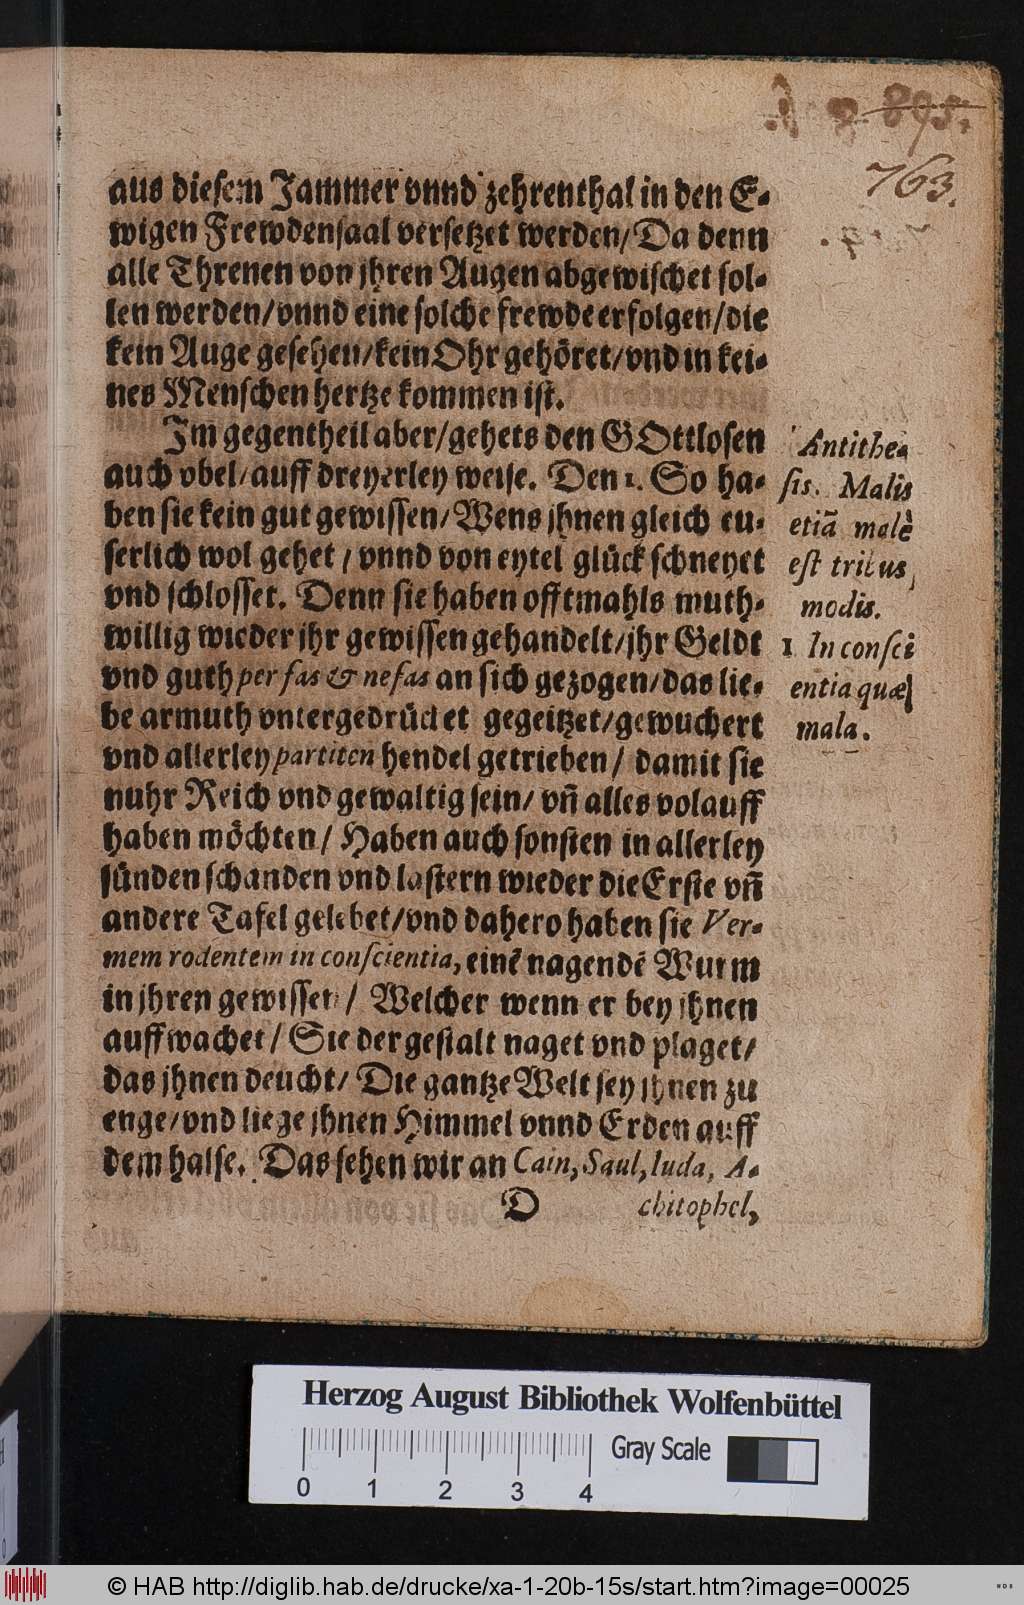 895.
763.
aus diesem Jammer vnnd zehrenthal in den E-
wigen Frewdensaal versetzet werden/ Da denn
alle Threnen von jhren Augen abgewischet sol-
len werden/ vnnd eine solche frewde erfolgen/ die
kein Auge gesehen/ kein Ohr gehöret/ vnd in kei-
nes Menschen hertze kommen ist.
Im gegentheil aber/ gehets den GOttlosen
auch vbel/ auff dreyerley weise. Den 1. So ha-
ben sie kein gut gewissen/ Wens jhnen gleich eu-
serlich wol gehet/ vnnd von eytel glück schneyet
vnd schlosset. Denn sie haben offtmahls muth-
willig wieder jhr gewissen gehandelt/ jhr Geldt
vnd guth per fas & nefas an sich gezogen/ das lie-
be armuth vntergedrücket gegeitzet/ gewuchert
vnd allerley partiten hendel getrieben/ damit sie
nuhr Reich vnd gewaltig sein/ vn̄ alles volauff
haben möchten/ Haben auch sonsten in allerley
sünden schanden vnd lastern wieder die Erste vn̄
andere Tafel gelebet/ vnd dahero haben sie Ver-
mem rodentem in conscientia, einē nagendē Wurm
in jhren gewissen/ Welcher wenn er bey jhnen
auffwachet/ Sie dergestalt naget vnd plaget/
das jhnen deucht/ Die gantze Welt sey jhnen zu
enge/ vnd liege jhnen Himmel vnnd Erden auff
dem halse. Das sehen wir an Cain, Saul, Iuda, A-
D chitophel,
Antithe-
sis. Malis
etiā malè
est tribus
modis.
1 In consci
entia quæ
mala.
Herzog August Bibliothek Wolfenbüttel
0 1 2 3 4
Gray Scale
© HAB http://diglib.hab.de/drucke/xa-1-20b-15s/start.htm?image=00025